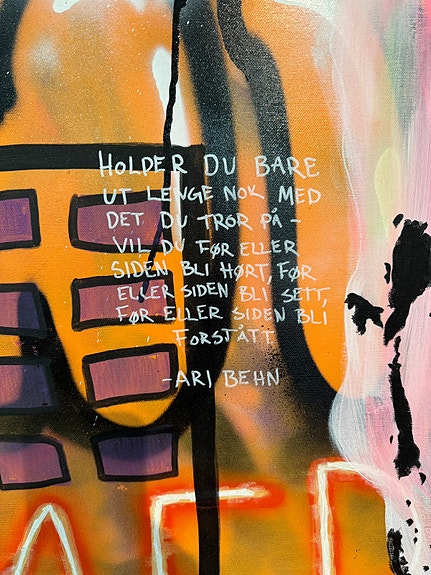 HOLDER DU BARE
UT LENGE NOK MED
DET DU TROR PÅ -
VIL DU FØR ELLER
SIDEN BLI HØRT, FØR
ELLER SIDEN BLI SETT,
FØR ELLER SIDEN BLI
FORSTÅTT
-ARI BEHN